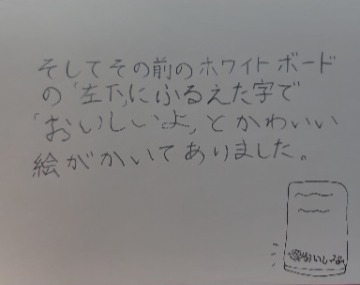 そしてその前のホワイトボード
の「左下」にふるえた字で
「おいしいよ」とかわいい
絵がかいてありました。